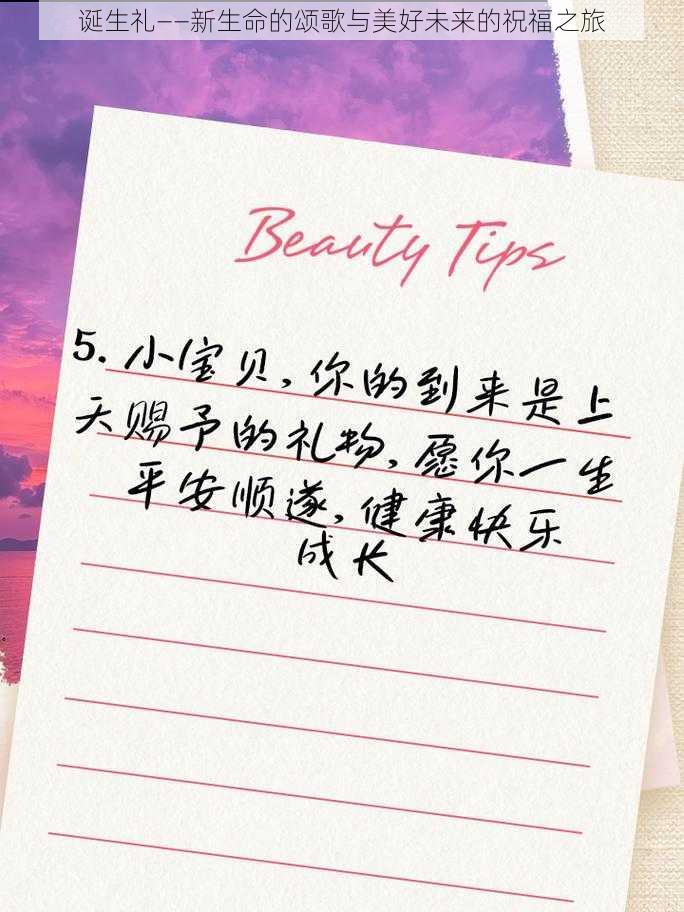 诞生礼——新生命的颂歌与美好未来的祝福之旅
Beauty Tips
5. 小宝贝，你的到来是上
天赐予的礼物，愿你一生
平安顺遂，健康快乐
成长